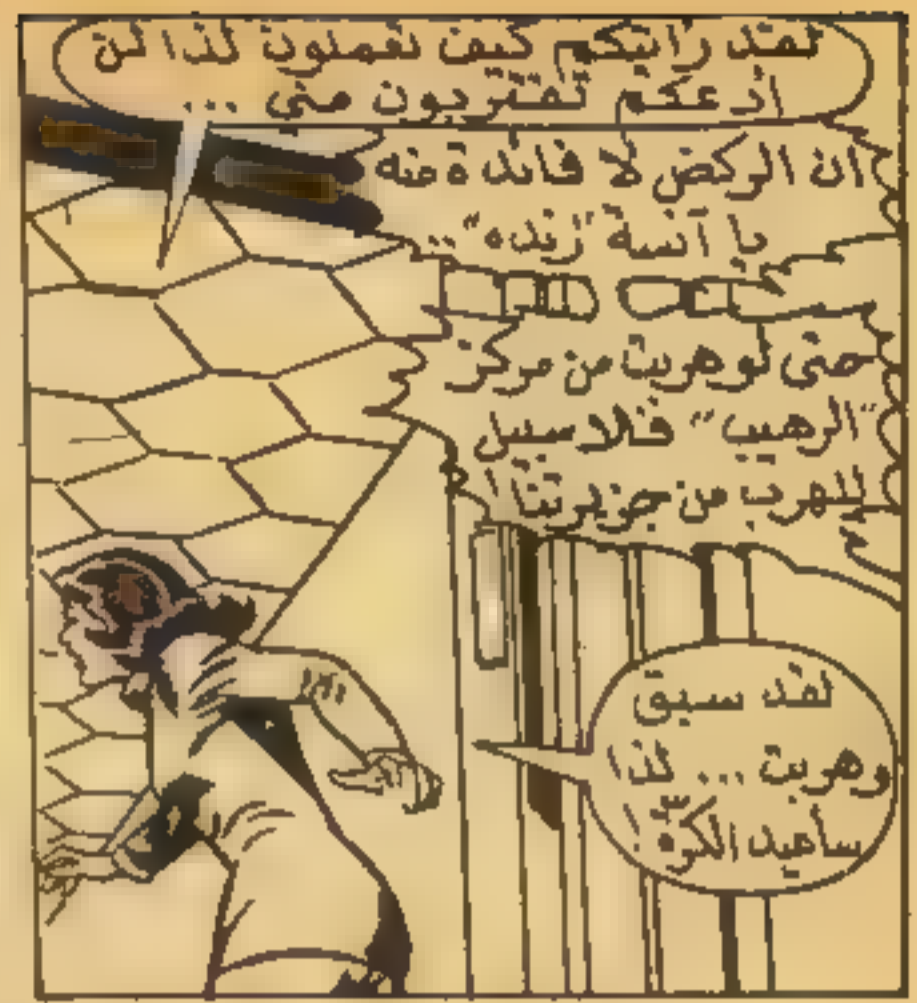 لقد رأيتكم كيف تعملون لذا لن
أدعكم تقتربون مني ...
ان الركض لا فائدة منه
يا آنسة "رنده"..
حتى لو هربت من مركز
"الرهيب" فلا سبيل
للهرب من جزيرتنا !
لقد سبق
وهربت ... لذا
سأعيد الكرّه !